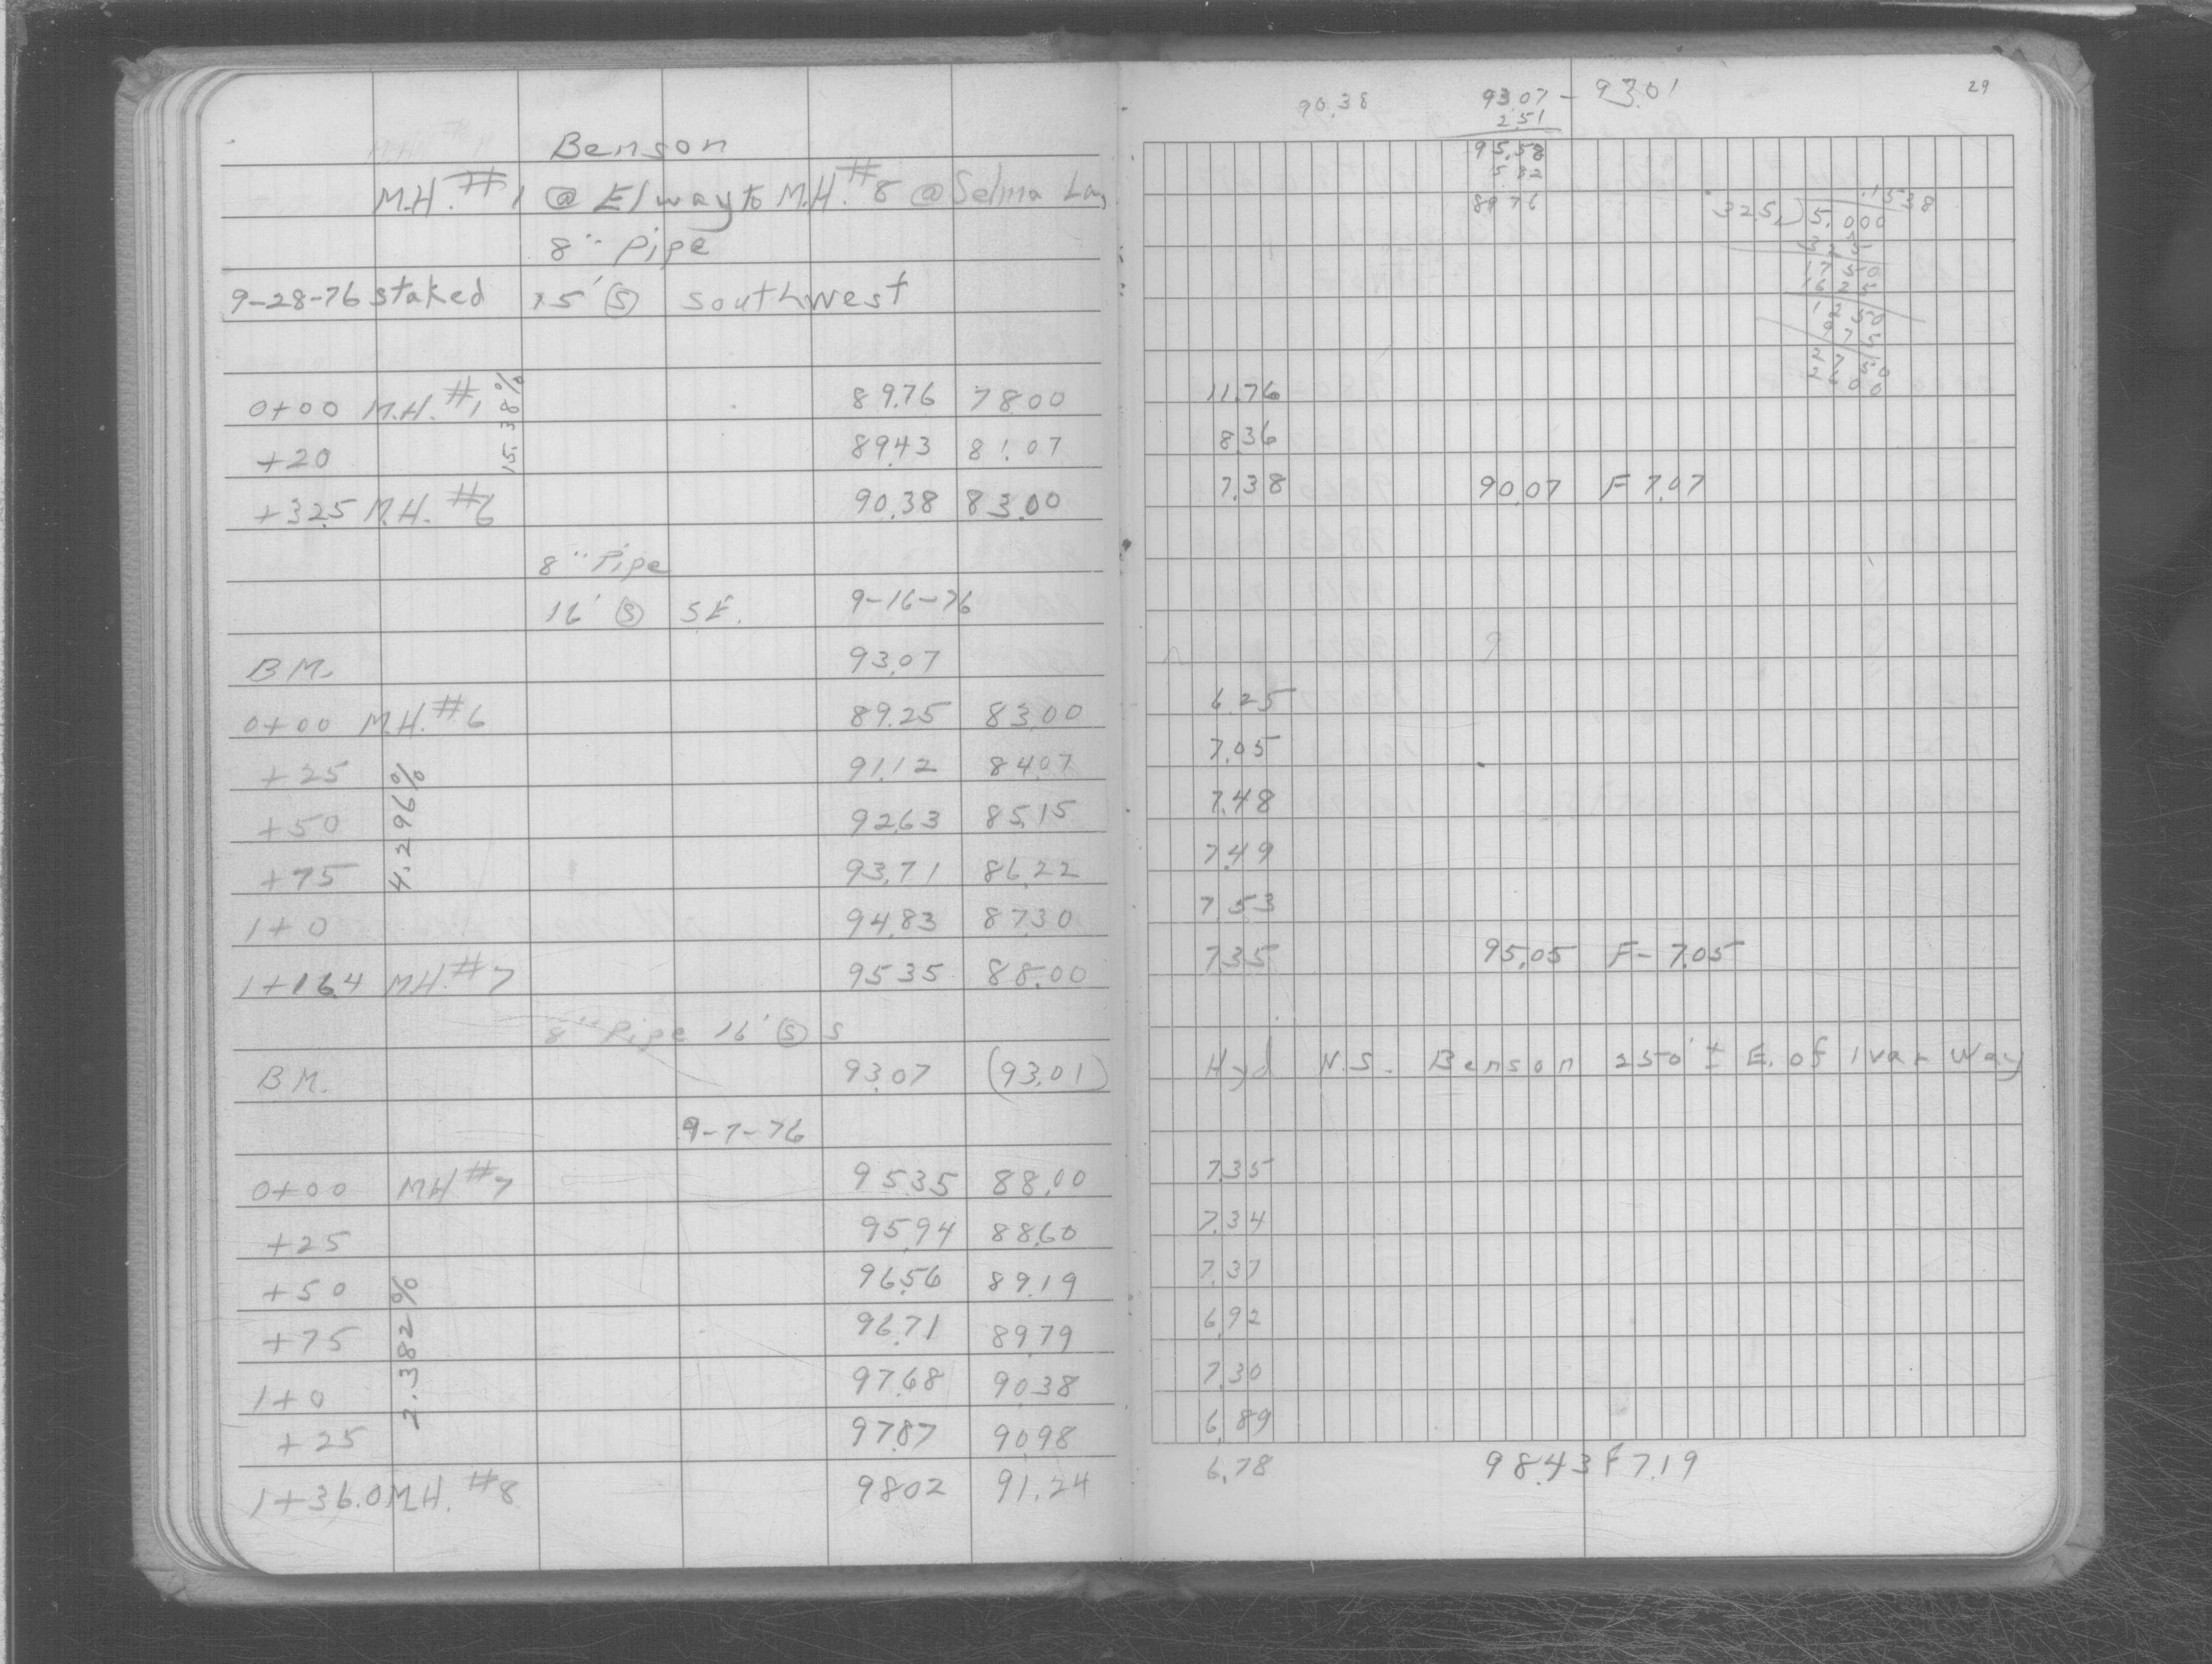 Benson
M.H. #1 @ Elway to M.H. #8 @ Selma Lan
8" Pipe
9-28-76 staked 15' Ⓢ southwest
0+00 M.H. #1 89.76 78.00
15.38%
+20 89.43 81.07
+32.5 M.H. #6 90.38 83.00
8" Pipe
16' Ⓢ S.E. 9-16-76
B.M. 93.07
0+00 M.H. #6 89.25 83.00
+25 91.12 84.07
4.296%
+50 92.63 85.15
+75 93.71 86.22
1+0 94.83 87.30
1+16.4 MH. #7 95.35 88.00
8" Pipe 16' Ⓢ S
B.M. 93.07 (93.01)
9-7-76
0+00 MH #7 95.35 88.00
+25 95.94 88.60
+50 96.56 89.19
2.382%
+75 96.71 89.79
1+0 97.68 90.38
+25 97.87 90.98
1+36.0 M.H. #8 98.02 91.24
29
90.38 93.07 - 93.01
2.51
95.58
5.82
89.76
.1538
32.5 ) 5.000
3 2 5
1750
1625
1250
975
2750
2600
11.76
8.36
7.38 90.07 F 7.07
6.25
7.05
7.48
7.49
7.53
7.35 95.05 F- 7.05
Hyd N.S. Benson 250' ± E. of Ivar Way
7.35
7.34
7.37
6.92
7.30
6.89
6.78 98.43 F 7.19